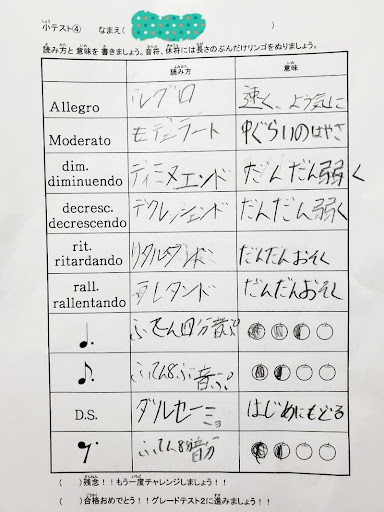 小テスト④ なまえ( )
読み方と意味を書きましょう。音符、休符には長さのぶんだけリンゴをぬりましょう。
読み方 意味
Allegro 速く、よう気に
Moderato モデラート 中ぐらいのはやさ
dim.
diminuendo ディミヌエンド だんだん弱く
decresc.
decrescendo デクレッシェンド だんだん弱く
rit.
ritardando リタルダンド だんだんおそく
rall.
rallentando ラレタンド だんだんおそく
ふてん四分音ぷ
ふてん8ぶ音ぷ
D.S. ダルセーニョ はじめにもどる
ふてん8分音
( )残念!!もう一度チャレンジしましょう!!
( )合格おめでとう!!グレードテスト2に進みましょう!!